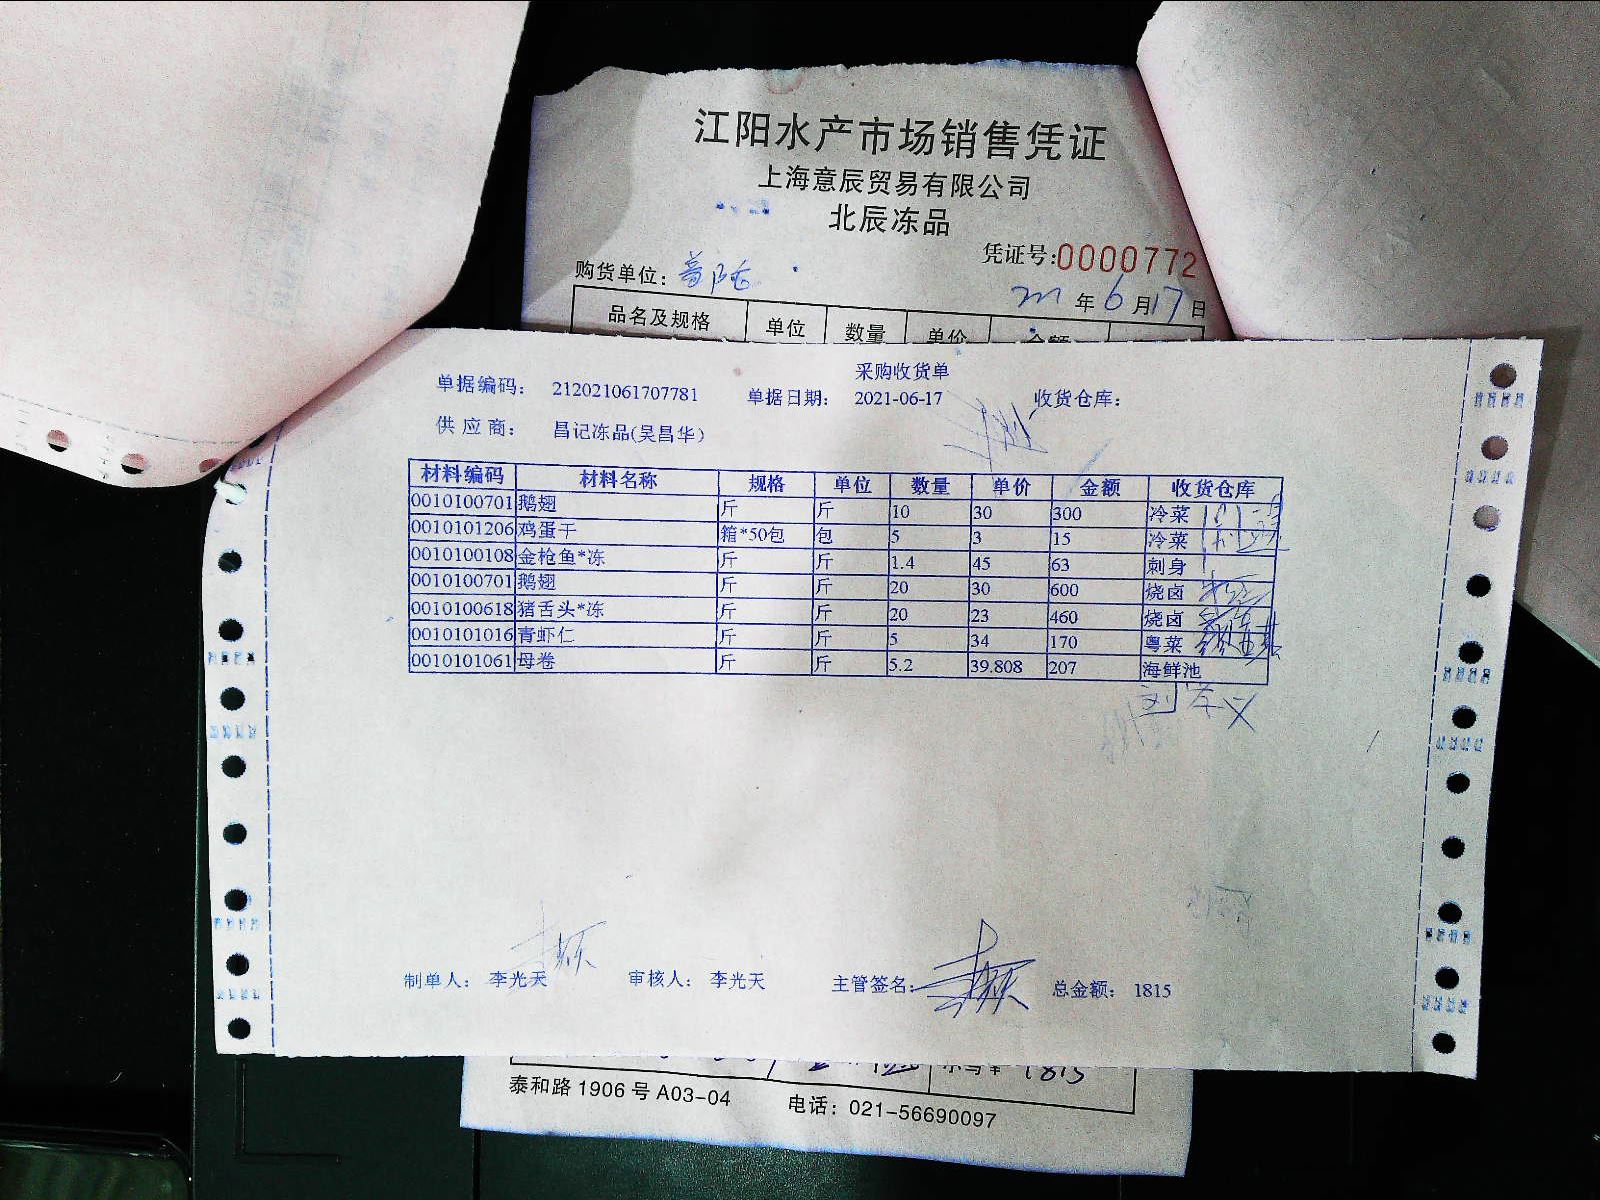 江阳水产市场销售凭证
上海意辰贸易有限公司
北辰冻品
凭证号:0000772
购货单位:
年 6 月 17 日
品名及规格 单位 数量 单价 金额
采购收货单
单据编码: 212021061707781 单据日期: 2021-06-17 收货仓库:
供应商: 昌记冻品(吴昌华)
材料编码 材料名称 规格 单位 数量 单价 金额 收货仓库
0010100701 鹅翅 斤 斤 10 30 300 冷菜
0010101206 鸡蛋干 箱*50包 包 5 3 15 冷菜
0010100108 金枪鱼*冻 斤 斤 1.4 45 63 刺身
0010100701 鹅翅 斤 斤 20 30 600 烧卤
0010100618 猪舌头*冻 斤 斤 20 23 460 烧卤
0010101016 青虾仁 斤 斤 5 34 170 粤菜
0010101061 母卷 斤 斤 5.2 39.808 207 海鲜池
制单人: 李光天 审核人: 李光天 主管签名: 总金额: 1815
小写¥ 1815
泰和路1906号A03-04 电话: 021-56690097